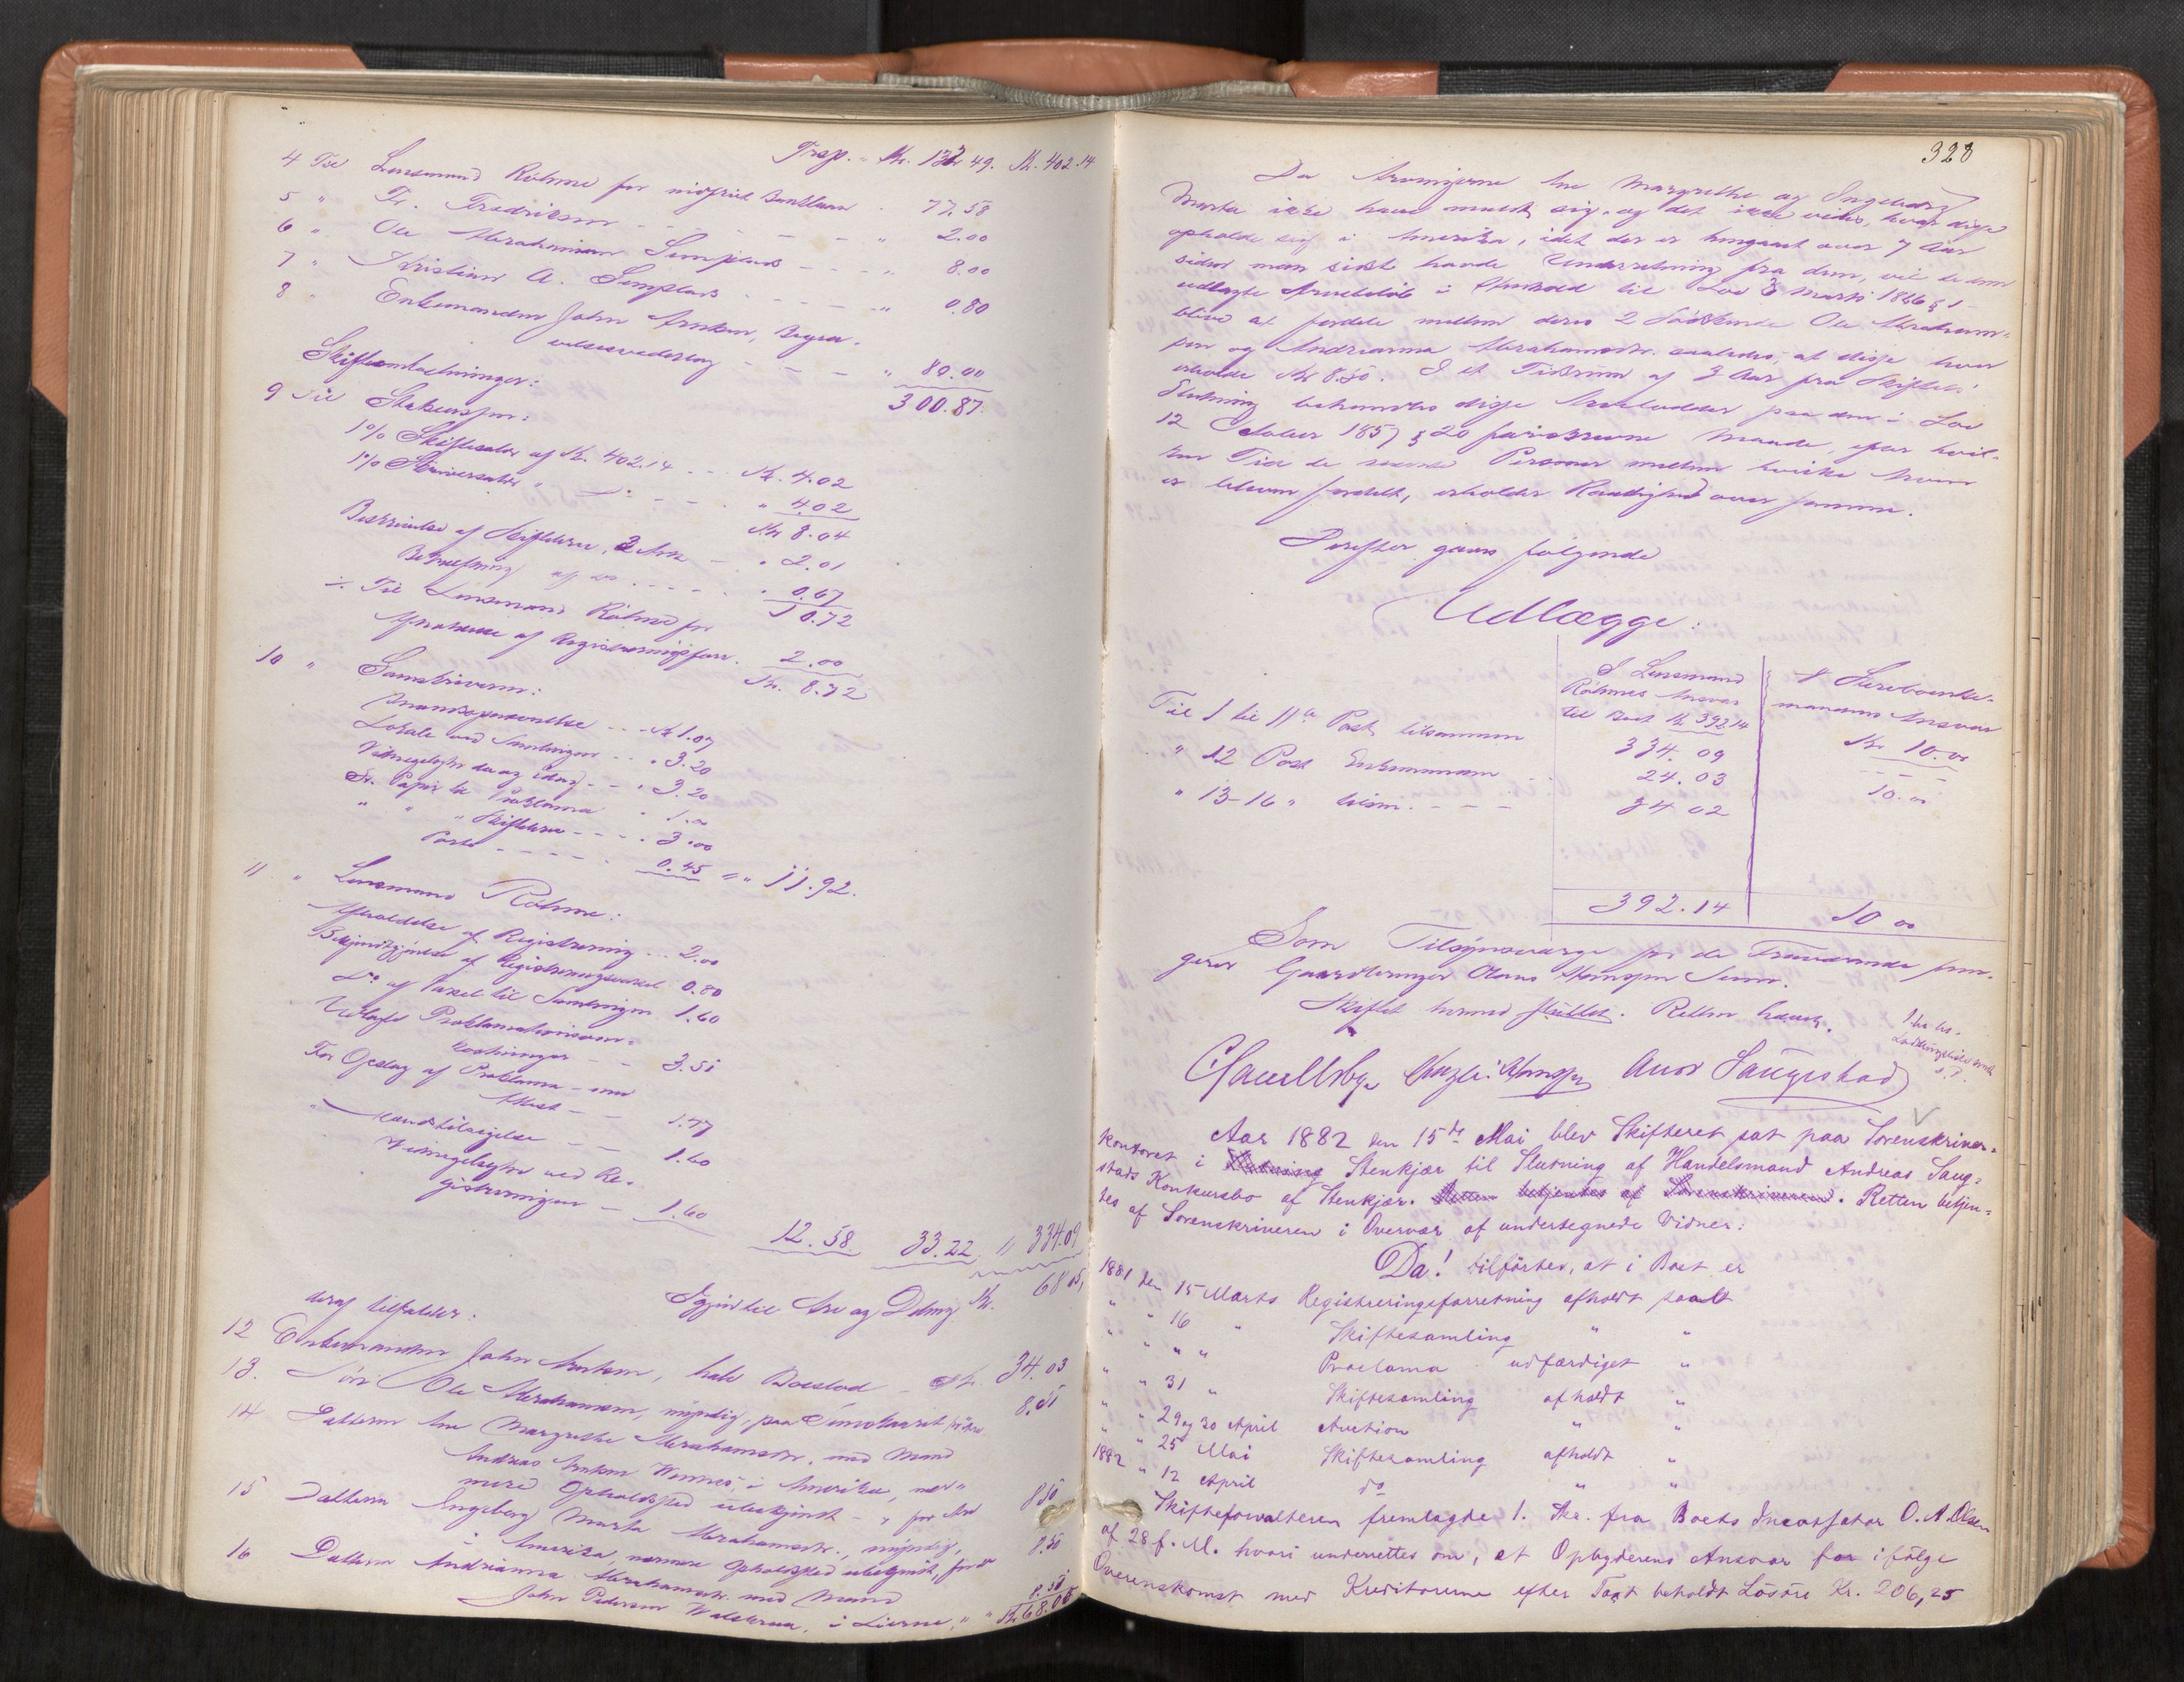 Trsp. Kr. 132.49. Kr. 402.14
4 Til Lensmand Röhme for 77.58
5 " Fr. Fredriksen " 2.00
6 " Ole Abrahamsen " 8.00
7 " Kristian A. " 0.80
8 " Enkemanden John Arntsen, Begra-
velsesvederlag " 80.00
300.87.
Skifteomkostninger:
9 Til Statskassen:
1% Skifteafgift af Kr. 402.14 Kr. 4.02
1% " 4.02
Kr 8.04
Beskrivelse af Skiftebrev, 3 Ark " 2.01
Bekræftning af do " 0.67
10.72
÷ Til Lensmand Röhme for
Afholdelse af Registreringsforr. 2.00
Kr. 8.72
10 " Sorenskriveren:
Kr 1.07
Lokale ved Samlingen " 3.20
Vidnegebyhr da og idag " 3.20
St. Papir til Proklama " 1.00
" " " Skiftebrev " 3.00
Porto 0.45 = " 11.92.
11 " Lensmand Röhme:
Afholdelse af Registrering 2.00
Bekjendtgjörelse af Registreringsvarsel 0.80
Do af Varsel til Samlingen 1.60
Udlagte Proklamationsom-
kostninger 3.51
For Opslag af Proklama med
Attest 1.47
" Mændstilsigelse 1.60
Vidnegebyhr ved Re-
gistreringen 1.60
12.58. 33.22 " 334.09
Igjen til Arv og Deling Kr. 68.05
deraf tilfalder:
12 Enkemanden John Arntsen, halv Boeslod Kr. 34.03
13. Sön Ole Abrahamsen, myndig, paa 8.51
14 Datteren Ane Margrethe Abrahamsdtr. med Mand
Andreas Arntsen i Amerika, nær-
mere Opholdssted ubekjendt, for Arv 8.50
15 Datteren Ingeborg Marta Abrahamsdtr., myndig,
i Amerika, nærmere Opholdssted ubekjendt, for do 8.50
16 Datteren Andrianna Abrahamsdtr. med Mand
John Pedersen i Lierne, " " 8.51
Kr 68.05
328
Da Arvingerne Ane Margrethe og Ingeborg
Marta ikke have meldt sig, og det ikke vides, hvor disse
opholde sig i Amerika, idet der er hengaaet over 7 Aar
siden man sidst havde Underretning fra dem, vil de dem
udlagte Arvebelöb i Henhold til Lov 3 Marts 1866 § 1
blive at fordele mellem deres 2 Södskende Ole Abraham-
sen og Andrianna Abrahamsdtr. saaledes, at disse hver
erholde Kr 8.50. I et Tidsrum af 3 Aar fra Skiftets
Slutning behandles disse Arvelodder paa den i Lov
12 Oktober 1857 § 20 foreskrevne Maade, efter hvil-
ken Tid de nævnte Personer mellem hvilke Arven
er bleven fordelt, erholder Raadighed over samme.
Derefter gaves fölgende
Udlægge:
I Lensmand
Röhmes Ansvar
til Boet Kr 392.14
I Stervboenke-
mandens Ansvar
Kr 10.00
Til 1 til 11te Post tilsammen 334.09 - - -
" 12 Post Enkemanden 24.03 10.00
" 13-16 " tilsm. - - - 34 02
392.14 10 00
Som Tilsynsværge for de Fraværende fun-
gerer Gaardbruger Olaus Hansen
Skiftet hermed sluttet. Retten hævet.
Anor Saugestad
Aar 1882 den 15de Mai blev Skifteret sat paa Sorenskriver-
kontoret i Slutning Stenkjær til Slutning af Handelsmand Andreas Saug-
stads Konkursbo af Stenkjær. Retten betjentes af Sorenskriveren. Retten betjen-
tes af Sorenskriveren i Overvær af undertegnede Vidner:
Da! tilförtes, at i Boet er
1881 den 15 Marts Registreringsforretning afholdt
" " 16 " Skiftesamling " "
" " " " Proclama udfærdiget "
" " 31 " Skiftesamling afholdt "
" " 29 og 30 April Auction " "
" " 25 Mai Skiftesamling afholdt "
1882 " 12 April do " "
Skifteforvalteren fremlagde 1. Skr. fra Boets Incassator O. A. Olsen
af 28 f. M. hvori underrettes om, at Opbyderens Ansvar for ifölge
Overenskomst med Kreditorerne efter Taxt beholdt Lösöre Kr. 206,25